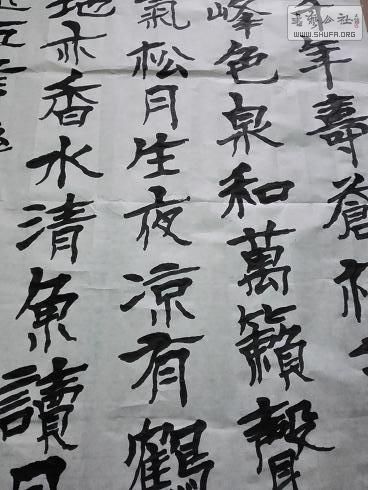 書法公社
WWW.SHUFA.ORG
年壽蒼
峰色泉和萬籟聲
氣松月生夜凉有鶴
地亦香水清魚讀月
五